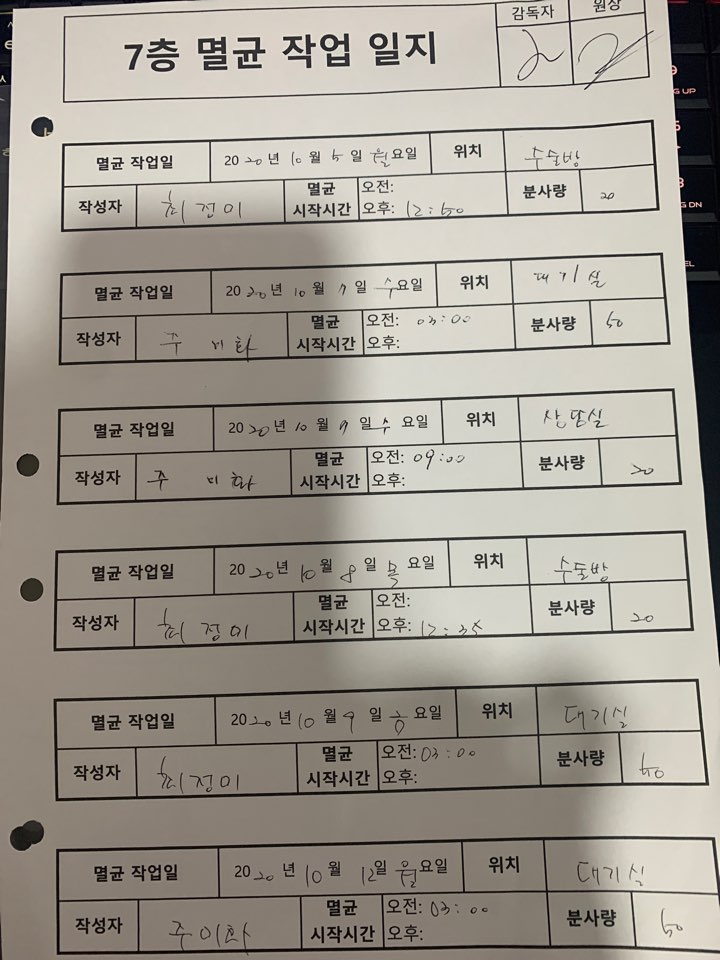 7층 멸균 작업 일지
감독자 원장
멸균 작업일 2020년 10월 5일 월요일 위치 수술방
작성자 최정미 멸균 시작시간 오전: 분사량 20
오후: 12:50
멸균 작업일 2020년 10월 7일 수요일 위치 대기실
작성자 주미화 멸균 시작시간 오전: 03:00 분사량 50
오후:
멸균 작업일 2020년 10월 일 수요일 위치 상담실
작성자 주미화 멸균 시작시간 오전: 09:00 분사량 20
오후:
멸균 작업일 2020년 10월 8일 목요일 위치 수술방
작성자 최정미 멸균 시작시간 오전: 분사량 20
오후: 12:35
멸균 작업일 2020년 10월 9일 금요일 위치 대기실
작성자 최정미 멸균 시작시간 오전: 03:00 분사량 50
오후:
멸균 작업일 2020년 10월 12일 월요일 위치 대기실
작성자 주미화 멸균 시작시간 오전: 03:00 분사량 50
오후: